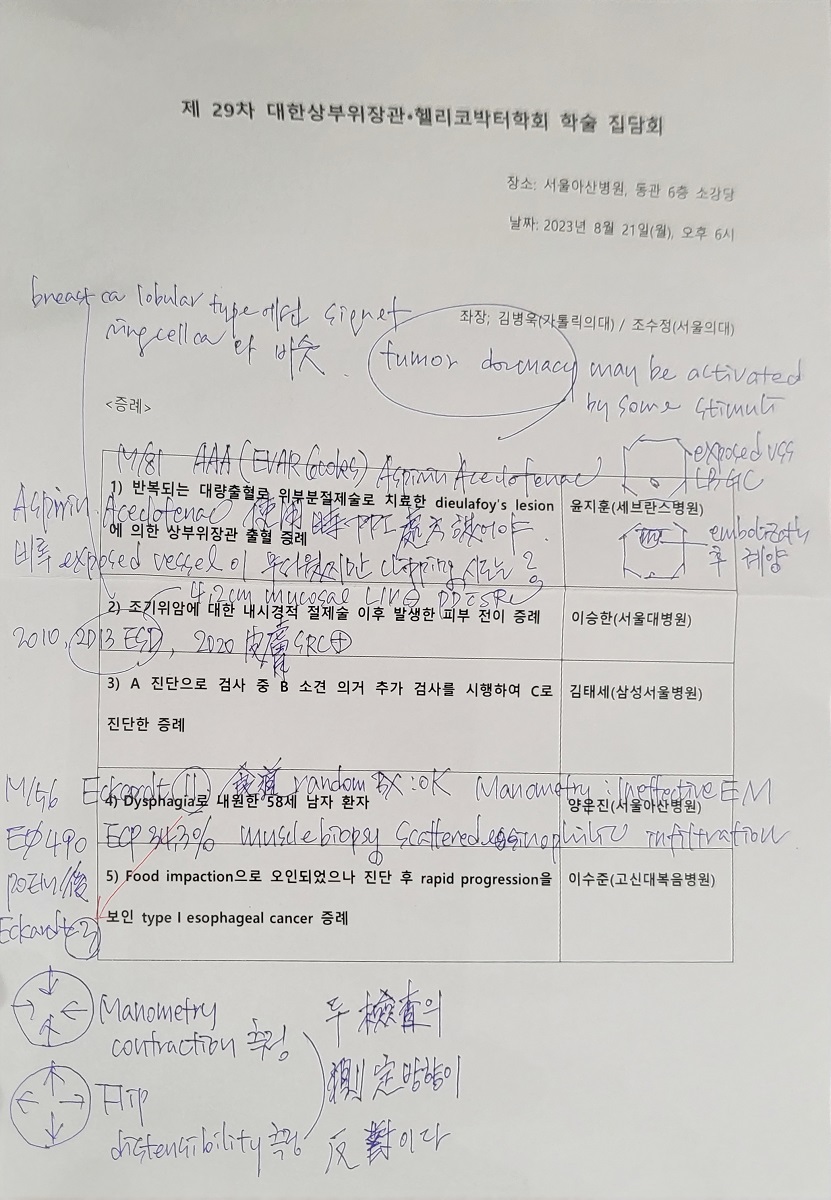 제 29차 대한상부위장관•헬리코박터학회 학술 집담회
장소: 서울아산병원, 동관 6층 소강당
날짜: 2023년 8월 21일(월), 오후 6시
좌장; 김병욱(가톨릭의대) / 조수정(서울의대)
breast ca lobular type에선 signet
ring cell ca 와 비슷.
tumor dormacy may be activated
by some stimuli
<증례>
M/81 AAA (EVAR Aspirin Aceclofenac
exposed vss
LB GC
1) 반복되는 대량출혈로 위부분절제술로 치료한 dieulafoy's lesion
에 의한 상부위장관 출혈 증례
윤지훈(세브란스병원)
Aspirin, Aceclofenac 使用時 PPI 處方 했어야.
비록 exposed vessel이 무서웠지만 clipping 시도는?
후 궤양
4.2cm mucosal LVI⊖
2) 조기위암에 대한 내시경적 절제술 이후 발생한 피부 전이 증례
이승한(서울대병원)
2010, 2013 ESD, 2020 皮膚 SRC ⊕
3) A 진단으로 검사 중 B 소견 의거 추가 검사를 시행하여 C로
진단한 증례
김태세(삼성서울병원)
M/56 Eckardt 11 食道 random Bx : OK Manometry : ineffective EM
4) Dysphagia로 내원한 58세 남자 환자
양우진(서울아산병원)
490 ECP 34.3% muscle biopsy scattered eosinophilic infiltration
POEM 後
Eckardt 3
5) Food impaction으로 오인되었으나 진단 후 rapid progression을
보인 type I esophageal cancer 증례
이수준(고신대복음병원)
Manometry
contraction 측정
Flip
distensibility 측정
두 檢査의
測定방향이
反對이다